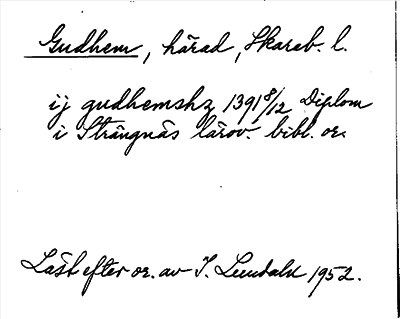 Gudhem, härad, Skarab. l.
ij gudhemshz 1391 8/12 Diplom
i Strängnäs lärov. bibl. or.
Läst efter or. av J. Lundahl 1952.